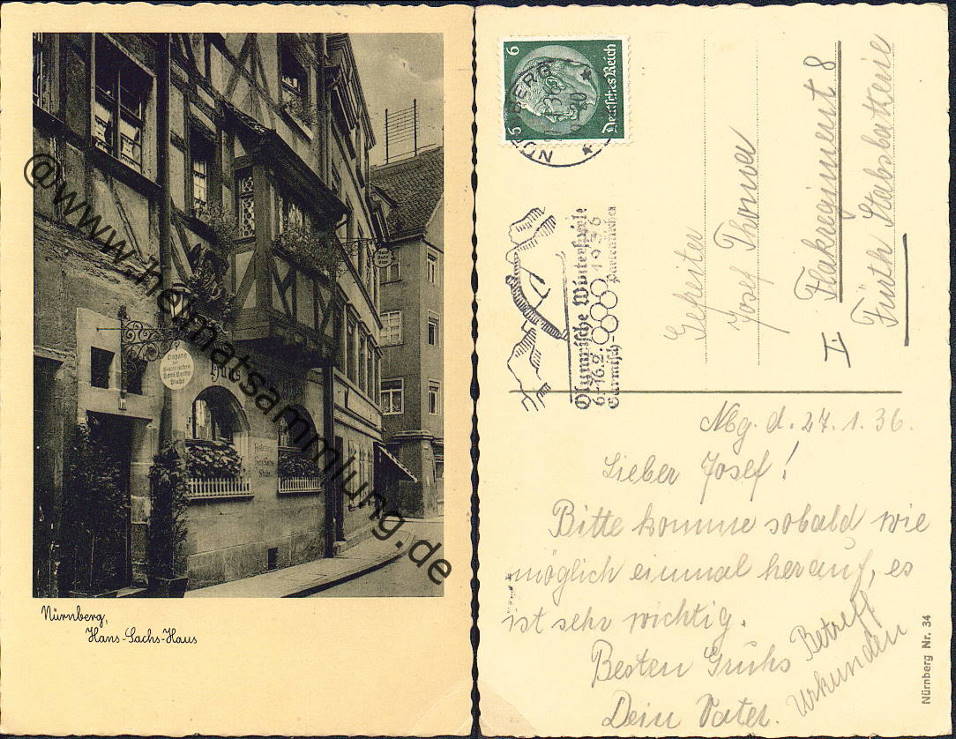 Nürnberg,
Hans-Sachs-Haus
@www.heimatsammlung.de
6 6
Deutsches Reich
Olympische Winterspiele
6.-16.2. 1936
Garmisch- Partenkirchen
Gefreiter
Josef Thoma
I. Flakregiment 8
Fürth Stabsbatterie
Nbg. d. 27.1.36.
Lieber Josef!
Bitte komme sobald wie
möglich einmal herauf, es
ist sehr wichtig.
Besten Gruhs
Dein Vater.
Betreff
Urkunden
Nürnberg Nr. 34